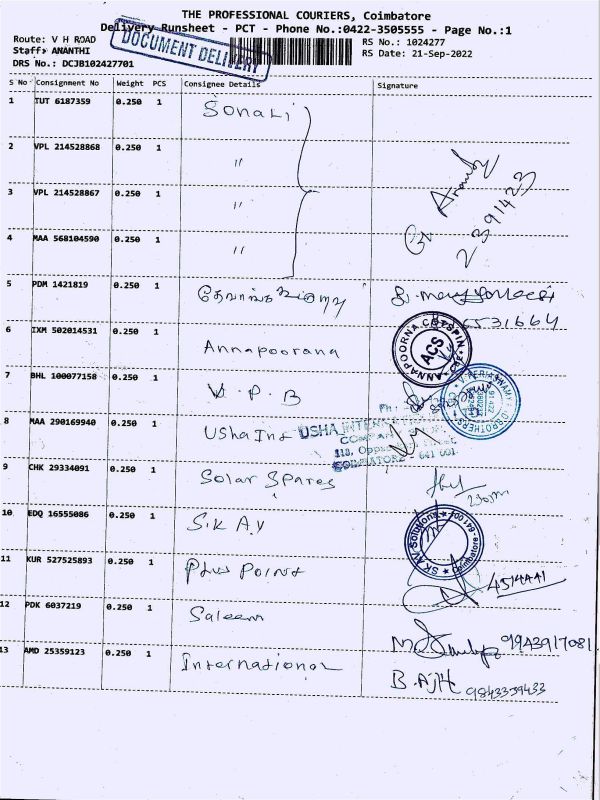 THE PROFESSIONAL COURIERS, Coimbatore
Delivery Runsheet - PCT - Phone No.:0422-3505555 - Page No.:1
Route: V H ROAD
RS No.: 1024277
Staff: ANANTHI
RS Date: 21-Sep-2022
DRS No.: DCJB102427701
DOCUMENT DELIVERY
S No Consignment No Weight PCS Consignee Details Signature
1 TUT 6187359 0.250 1 Sonali
2 VPL 214528868 0.250 1 "
3 VPL 214528867 0.250 1 "
2391423
4 MAA 568104590 0.250 1 "
5 PDM 1421819 0.250 1
6531664
6 IXM 502014531 0.250 1 Annapoorana
ACS
7 BHL 100077158 0.250 1 V.P.B
8 MAA 290169940 0.250 1 Usha Int
USHA
COIMBATORE - 641 001.
9 CHK 29334091 0.250 1 Solar Spares
10 EDQ 16555086 0.250 1 S.K A.V
SKAV Solutions Coimbatore - 641 001
11 KUR 527525893 0.250 1 Plus Point
12 PDK 6037219 0.250 1 Saleem
9943917081
13 AMD 25359123 0.250 1 International
9843359433